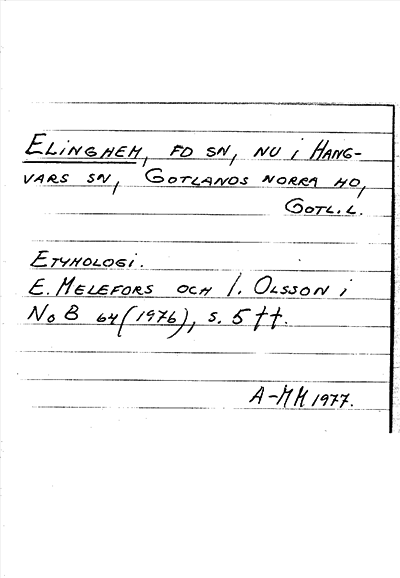 ELINGHEM, FD SN, NU i HANG-
VARS SN, GOTLANDS NORRA HD,
GOTL.L.
ETYMOLOGI.
E. MELEFORS OCH I. OLSSON i
NoB 64 (1976), s. 5 ff.
A-MM 1977.